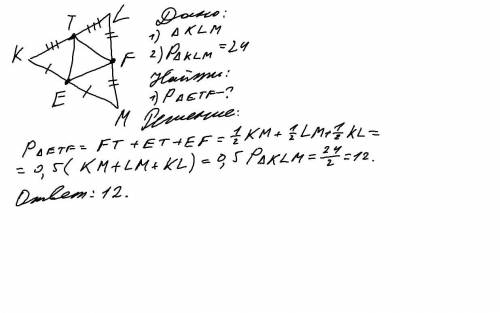 T
L
K
F
E
M
Дано:
1) ΔKLM
2) PΔKLM = 24
Найти:
1) PΔETF – ?
Решение:
PΔETF = FT + ET + EF = 1/2 KM + 1/2 LM + 1/2 KL =
= 0,5 ( KM + LM + KL ) = 0,5 PΔKLM = 24/2 = 12.
Ответ: 12.